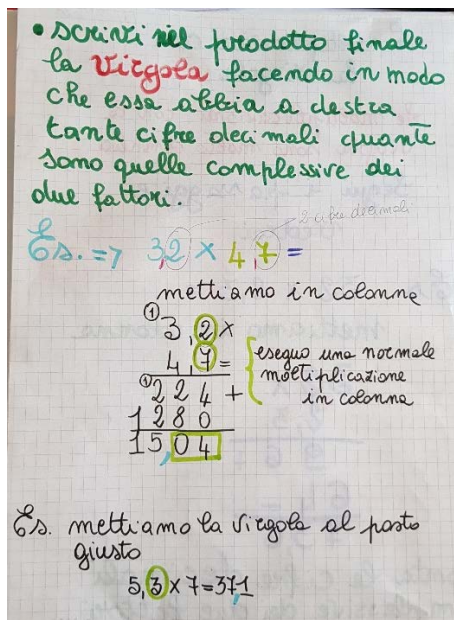 • scrivi nel prodotto finale
la virgola facendo in modo
che essa abbia a destra
tante cifre decimali quante
sono quelle complessive dei
due fattori.
2 cifre decimali
Es. => 3,2 × 4,7 =
mettiamo in colonna
(1)
3,2×
4,7=
(1)224+
1280
15,04
eseguo una normale
moltiplicazione
in colonna
Es. mettiamo la virgola al posto
giusto
5,3×7=37,1